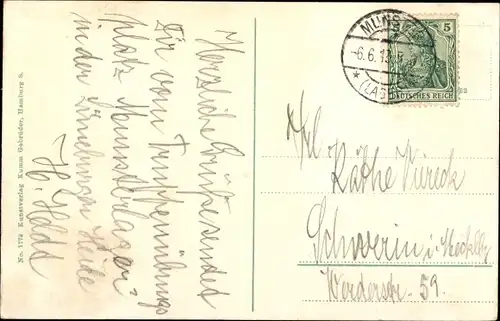 Herzliche Grüße sendet
Dir vom Truppenübungs
platz Munsterlager
in der Lüneburger Heide
H. Holdt
No. 177a Kunstverlag Kumm Gebrüder, Hamburg 9.
MUNS
-6.6.13
* (LAGER
5
DEUTSCHES REICH
Frl
Käthe
Schwerin i. Mecklb.
Werderstr. 59.